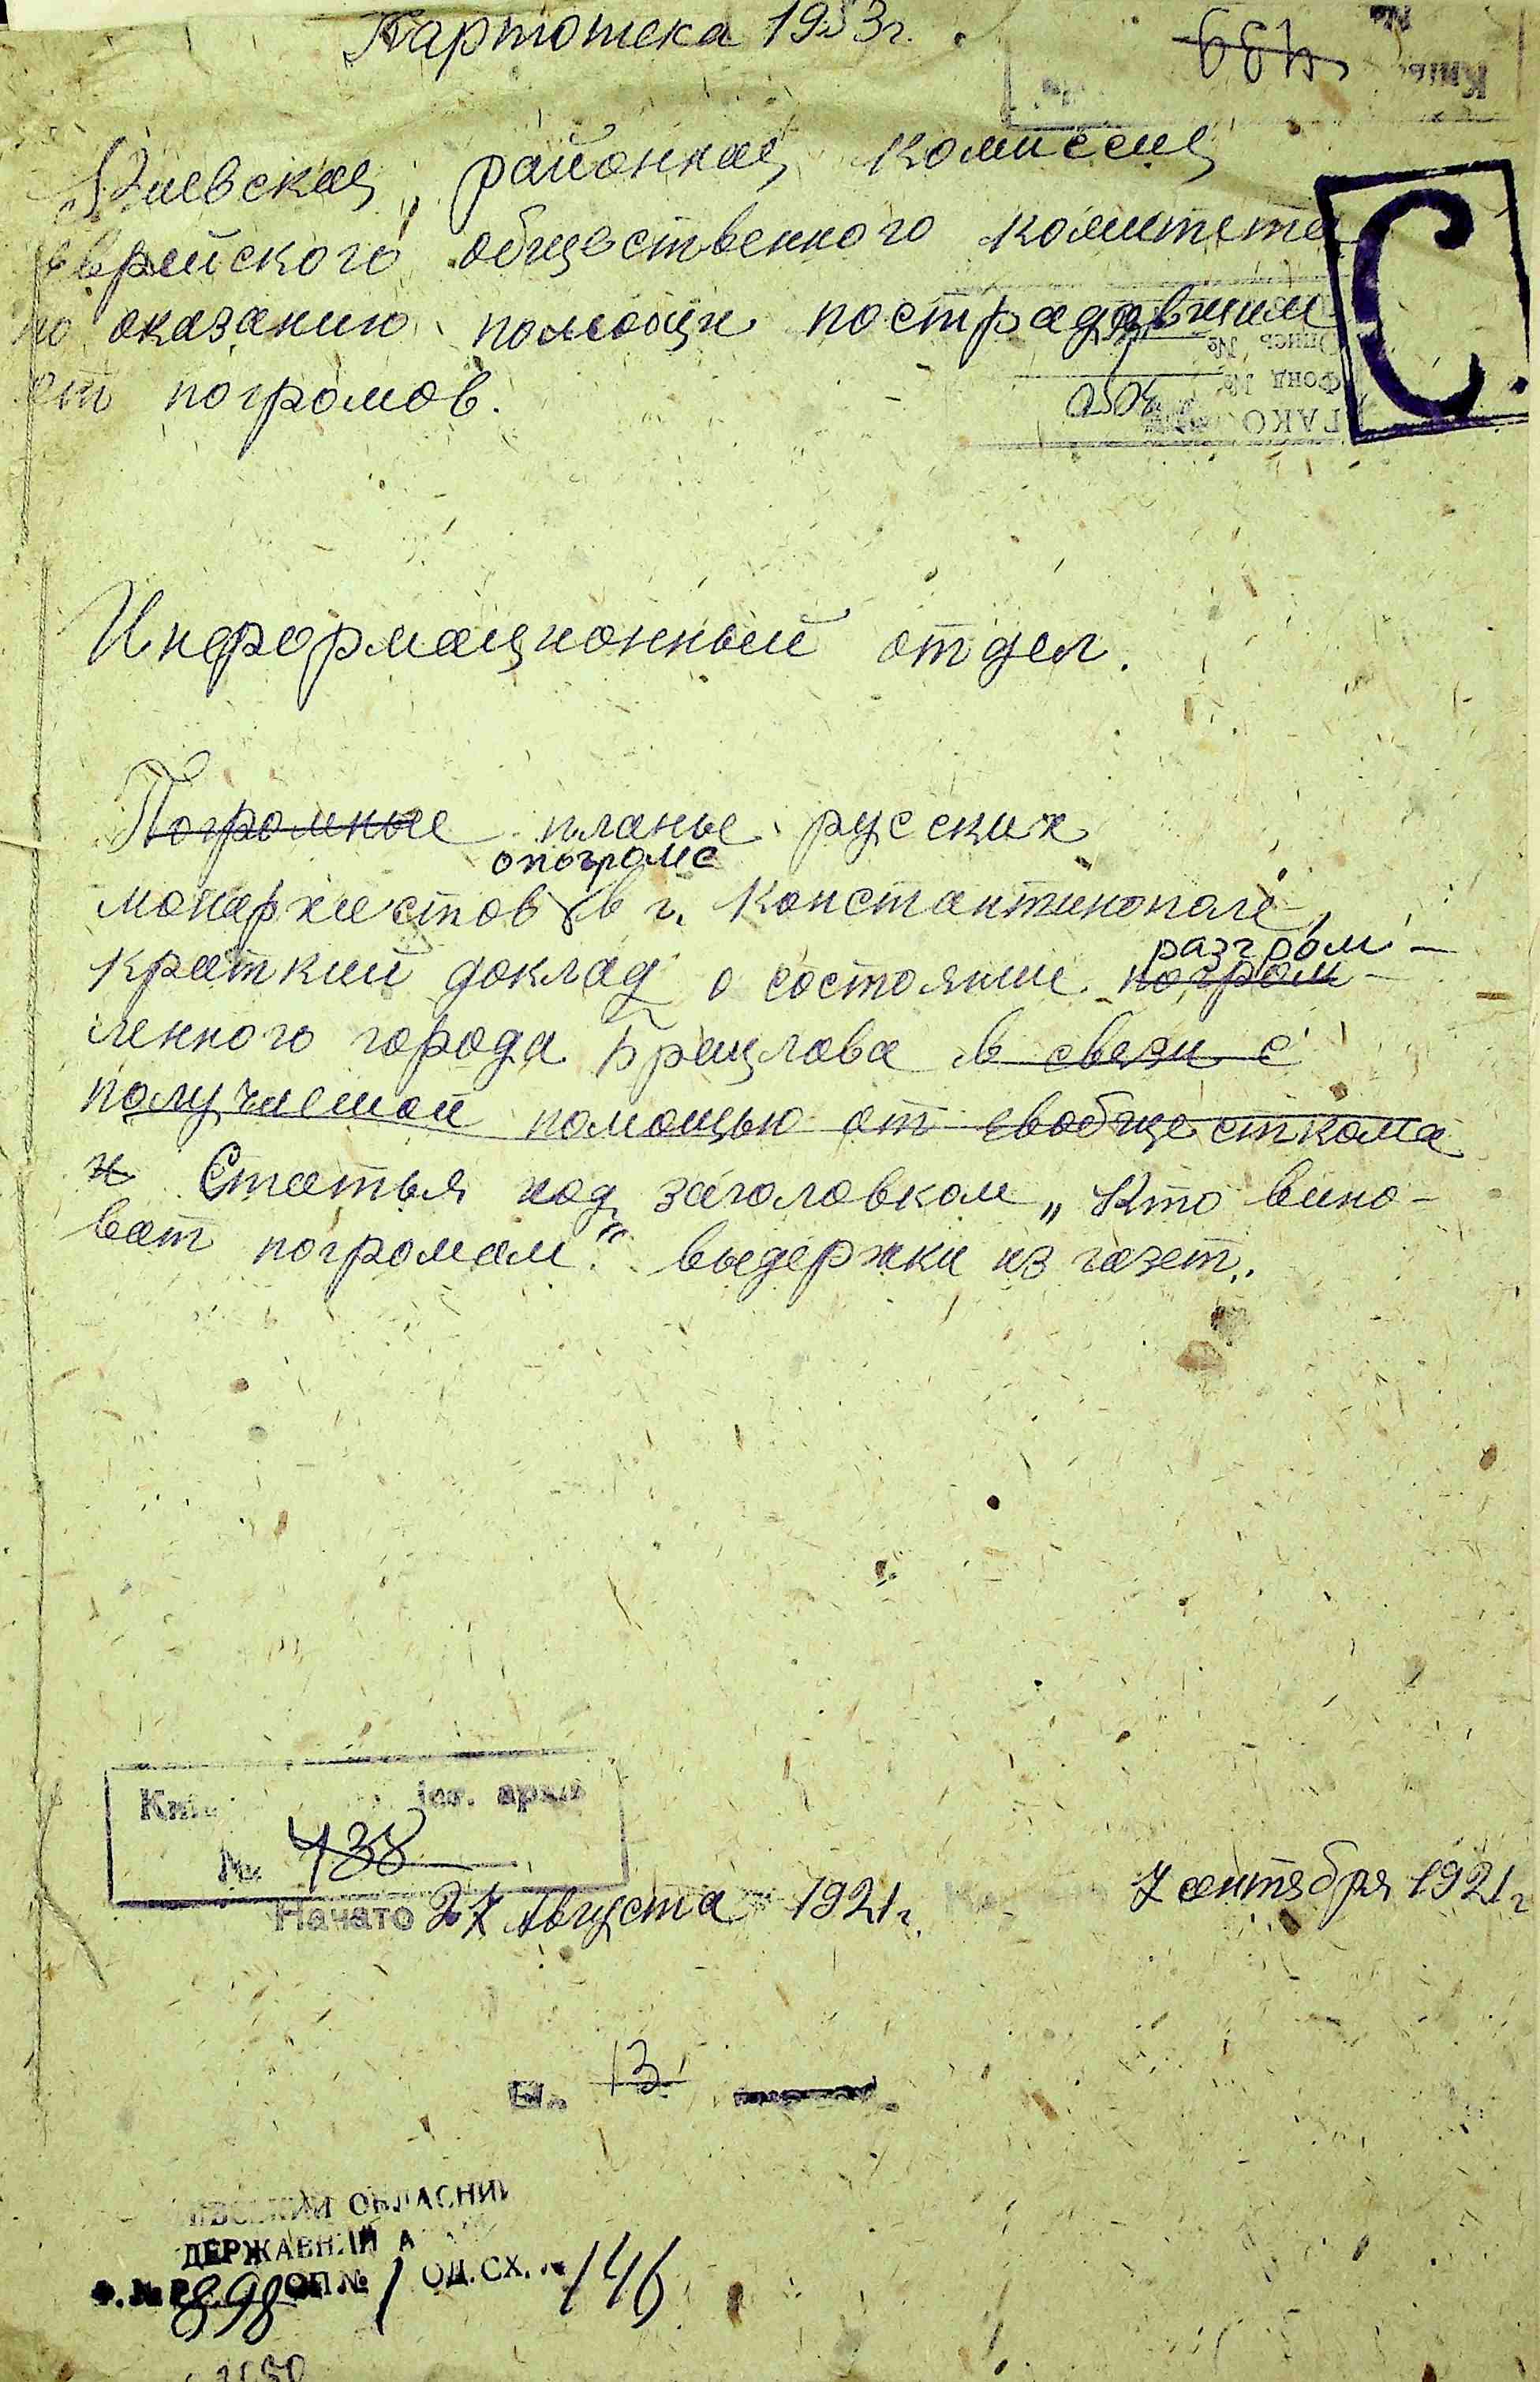 Картотека 1953г.
439
№
Киевская районная комиссия
еврейского общественного комитета
по оказанию помощи пострадавшим
от погромов.
С
Опись №
Фонд №
Информационный отдел.
Погромные планы русских
о погроме
монархистов в г. Константинополе,
разгром-
краткий доклад о состоянии погром-
ленного города Брацлава в связи с
получаемой помощью от евобщесткома
и Статья под заголовком „Кто вино-
ват погромам“ выдержки из газет.
іст. архів
№ 438
Начато 27 августа 1921г. 7 сентября 1921г
13
ОБЛАСНИЙ
ДЕРЖАВНИЙ А
Ф.№ Р 898 ОП № 1 ОД.СХ. № 146